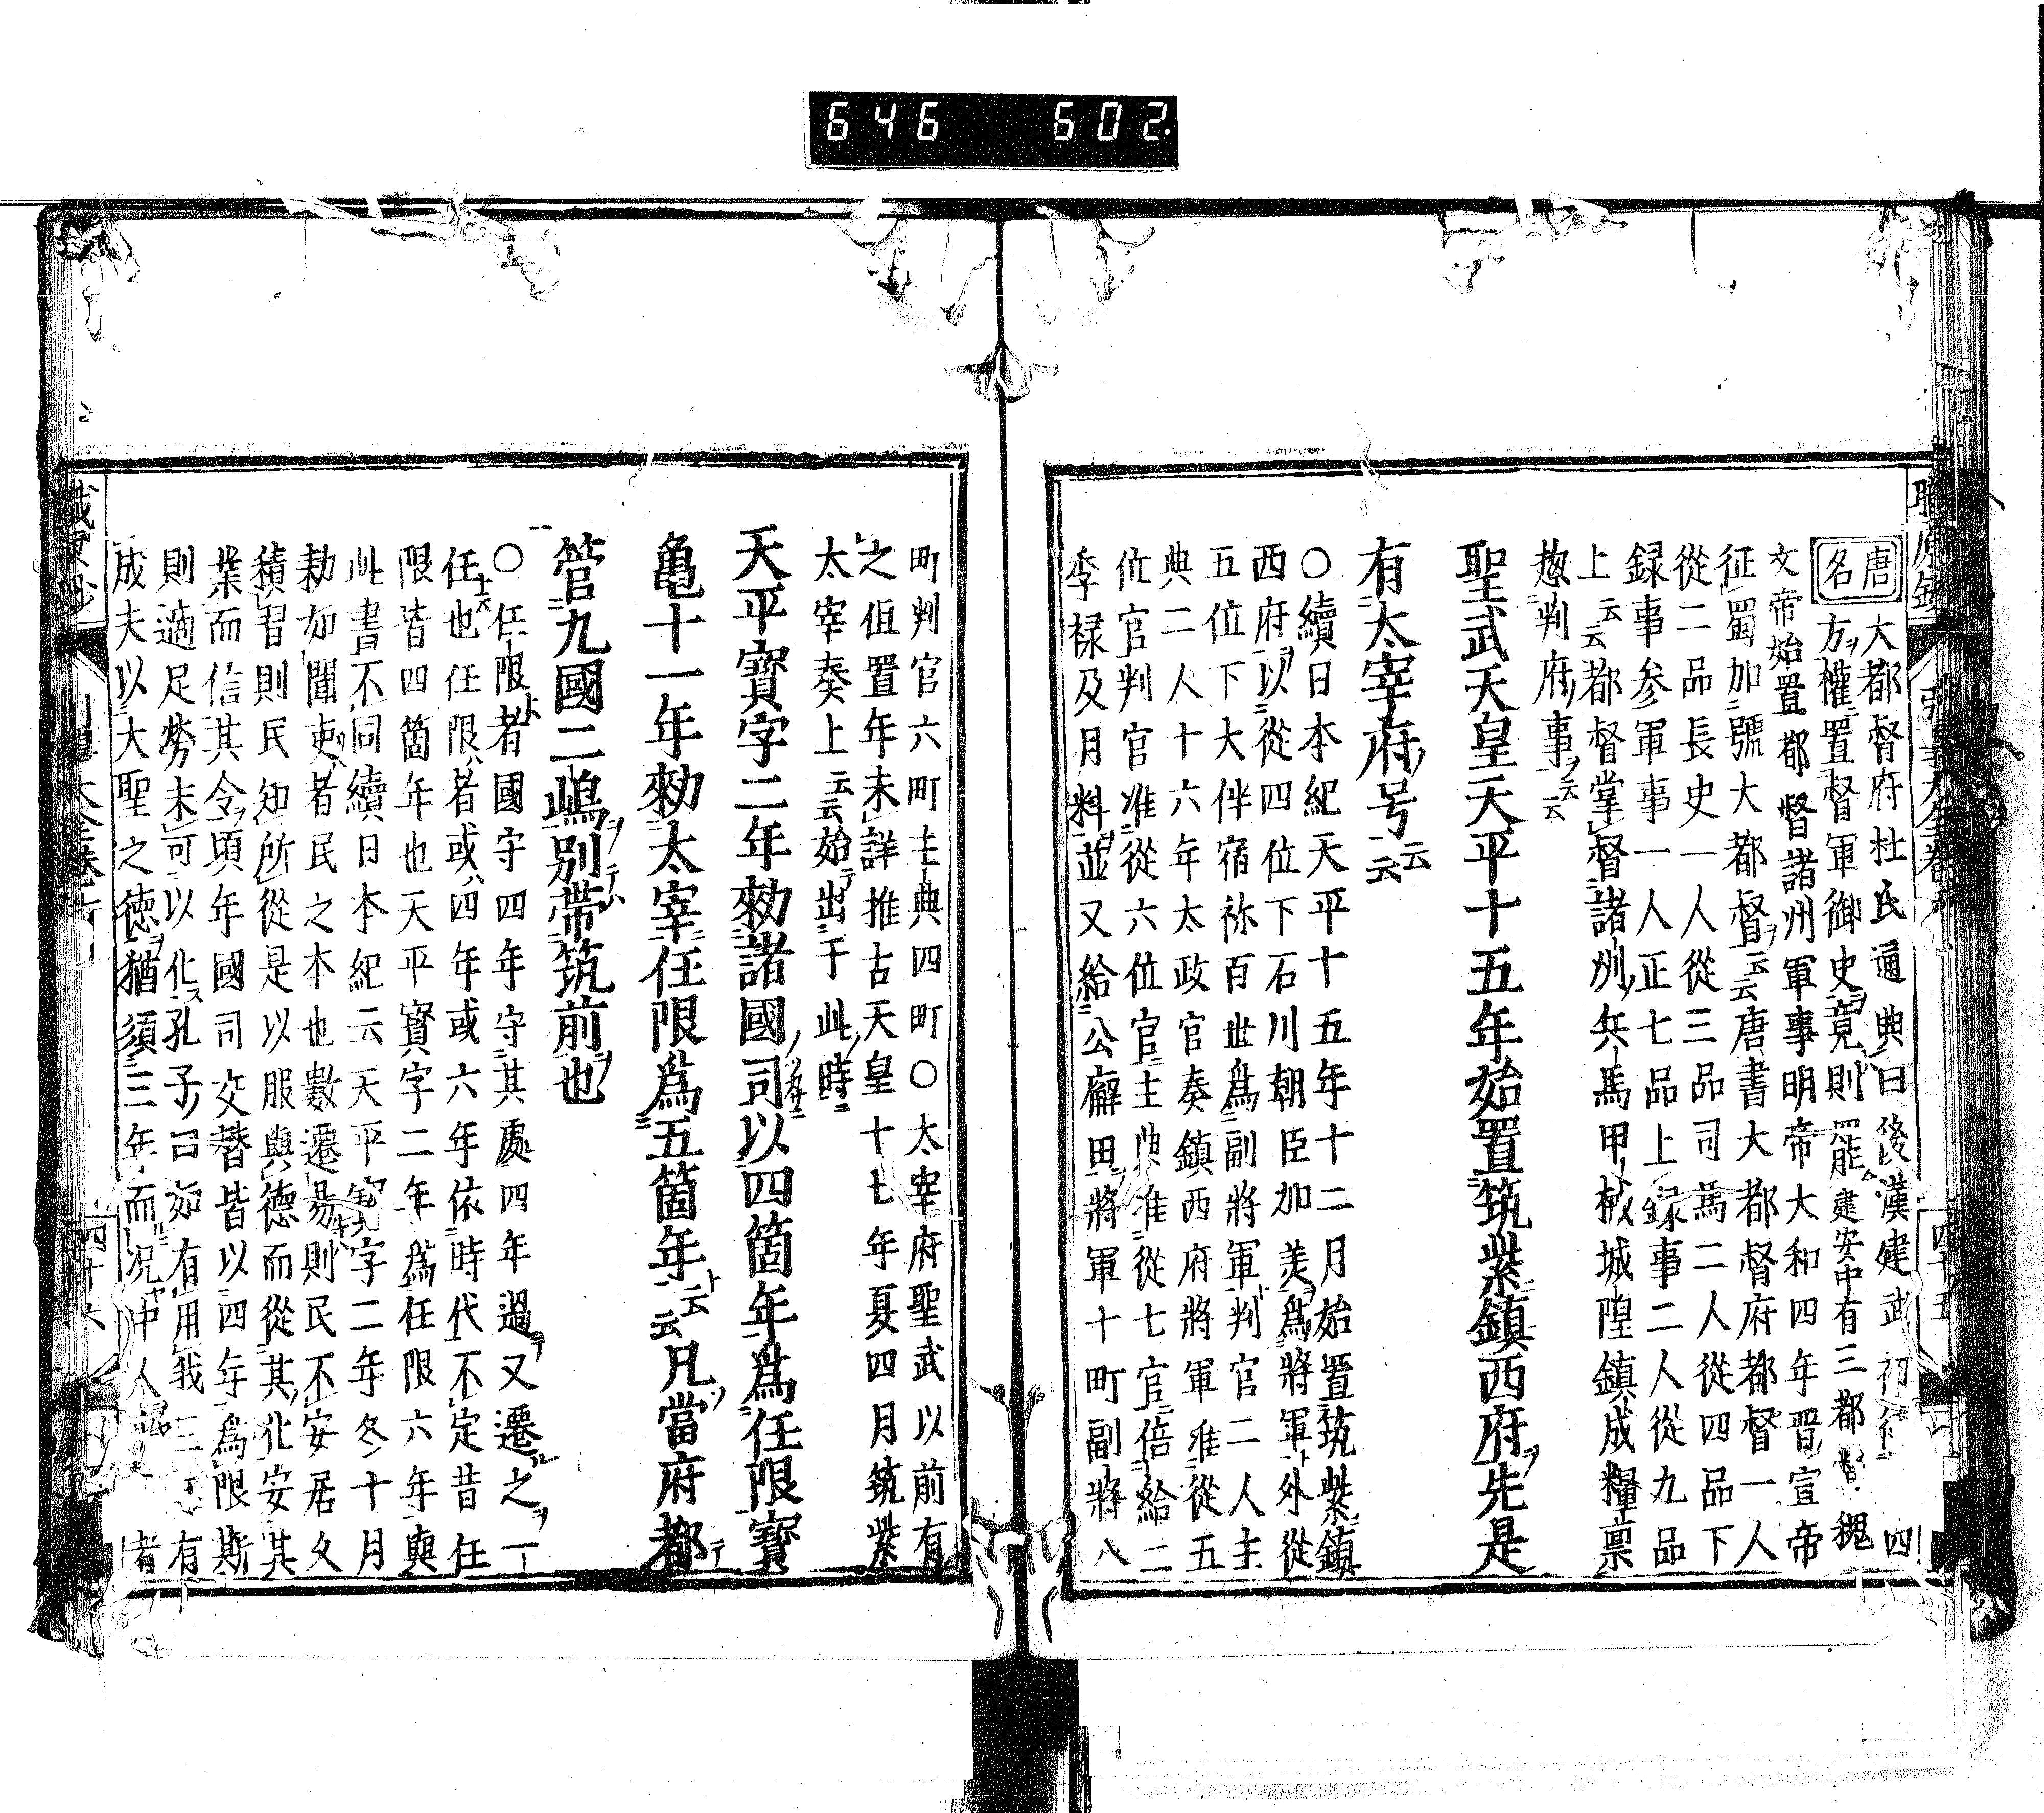 646 602.
唐名 大都督府杜氏通典曰後漢建武初 四
方權置督軍御史竟則罷建安中有三都督魏
文帝始置都督諸州軍事明帝大和四年晋宣帝
征蜀加號大都督云云唐書大都督府都督一人
從二品長史一人從三品司馬二人從四品下
録事参軍事一人正七品上録事二人從九品
上云云都督掌督諸州兵馬甲械城隍鎮戍糧禀
惣判府事云云
聖武天皇天平十五年始置筑紫鎮西府先是
有太宰府号云云
〇續日本紀天平十五年十二月始置筑紫鎮
西府以從四位下石川朝臣加美爲將軍外從
五位下大伴宿祢百世爲副將軍判官二人主
典二人十六年太政官奏鎮西府將軍准從五
位官判官准從六位官主典准從七官倍給二
季禄及月料並又給公廨田將軍十町副將八
町判官六町主典四町〇太宰府聖武以前有
之但置年未詳推古天皇十七年夏四月筑紫
太宰奏上云云始出于此時
天平寳字二年勅諸國司以四箇年爲任限寳
亀十一年勅太宰任限爲五箇年云云凡當府都
管九國二嶋別帯筑前也
〇任限者國守四年守其處四年過又遷之一
任也任限者或四年或六年依時代不定昔任
限皆四箇年也天平寳字二年爲任限六年與
此書不同續日本紀云天平寳字二年冬十月
勅如聞吏者民之本也數遷易則民不安居久
積習則民知所從是以服與德而從其化安其
業而信其令頃年國司交替皆以四年爲限斯
則適足勞未可以化孔子曰如有用我三 有
成夫以大聖之徳猶須三年而况中人 者